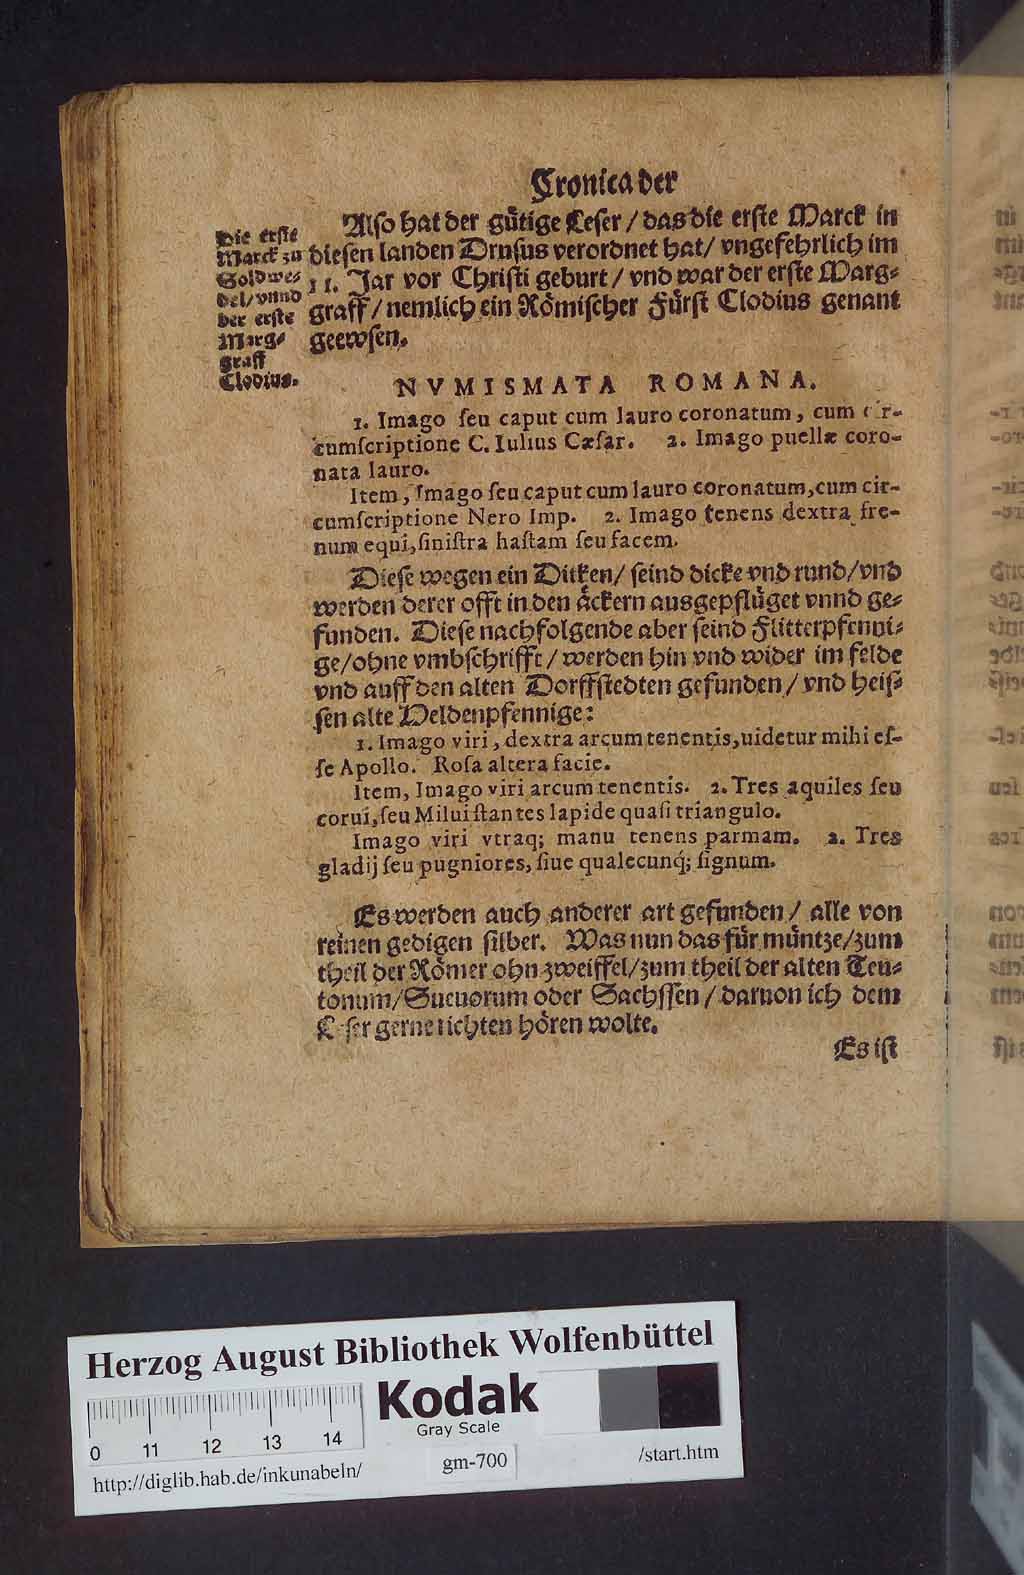 Cronica der
Also hat der gütige Leser / das die erste Marck in
diesen landen Drusus verordnet hat / vngefehrlich im
11. Jar vor Christi geburt / vnd war der erste Marg⸗
graff / nemlich ein Römischer Fürst Clodius genant
geewsen.
Die erste
Marck zu
Soldwe⸗
del / vnnd
der erste
Marg⸗
graff
Clodius.
NVMISMATA ROMANA.
1. Imago ſeu caput cum lauro coronatum, cum cir-
cumſcriptione C. Iulius Cæſar. 2. Imago puellæ coro-
nata lauro.
Item, Imago ſeu caput cum lauro coronatum, cum cir-
cumſcriptione Nero Imp. 2. Imago tenens dextra fre-
num equi, ſiniſtra haſtam ſeu facem.
Diese wegen ein Ditken / seind dicke vnd rund / vnd
werden derer offt in den äckern ausgepflüget vnnd ge⸗
funden. Diese nachfolgende aber seind Flitterpfenni⸗
ge / ohne vmbschrifft / werden hin vnd wider im felde
vnd auff den alten Dorffstedten gefunden / vnd heis⸗
sen alte Heldenpfennige:
1. Imago viri, dextra arcum tenentis, uidetur mihi eſ-
ſe Apollo. Roſa altera facie.
Item, Imago viri arcum tenentis. 2. Tres aquiles ſeu
corui, ſeu Milui ſtantes lapide quaſi triangulo.
Imago viri vtraq; manu tenens parmam. 2. Tres
gladij ſeu pugniores, ſiue qualecunq́; ſignum.
Es werden auch anderer art gefunden / alle von
reinen gedigen silber. Was nun das für müntze / zum
theil der Römer ohn zweiffel / zum theil der alten Teu⸗
tonum / Sueuorum oder Sachssen / daruon ich dem
Leser gerne richten hören wolte.
Es ist
Herzog August Bibliothek Wolfenbüttel
Kodak
Gray Scale
0 11 12 13 14
http://diglib.hab.de/inkunabeln/
gm-700
/start.htm